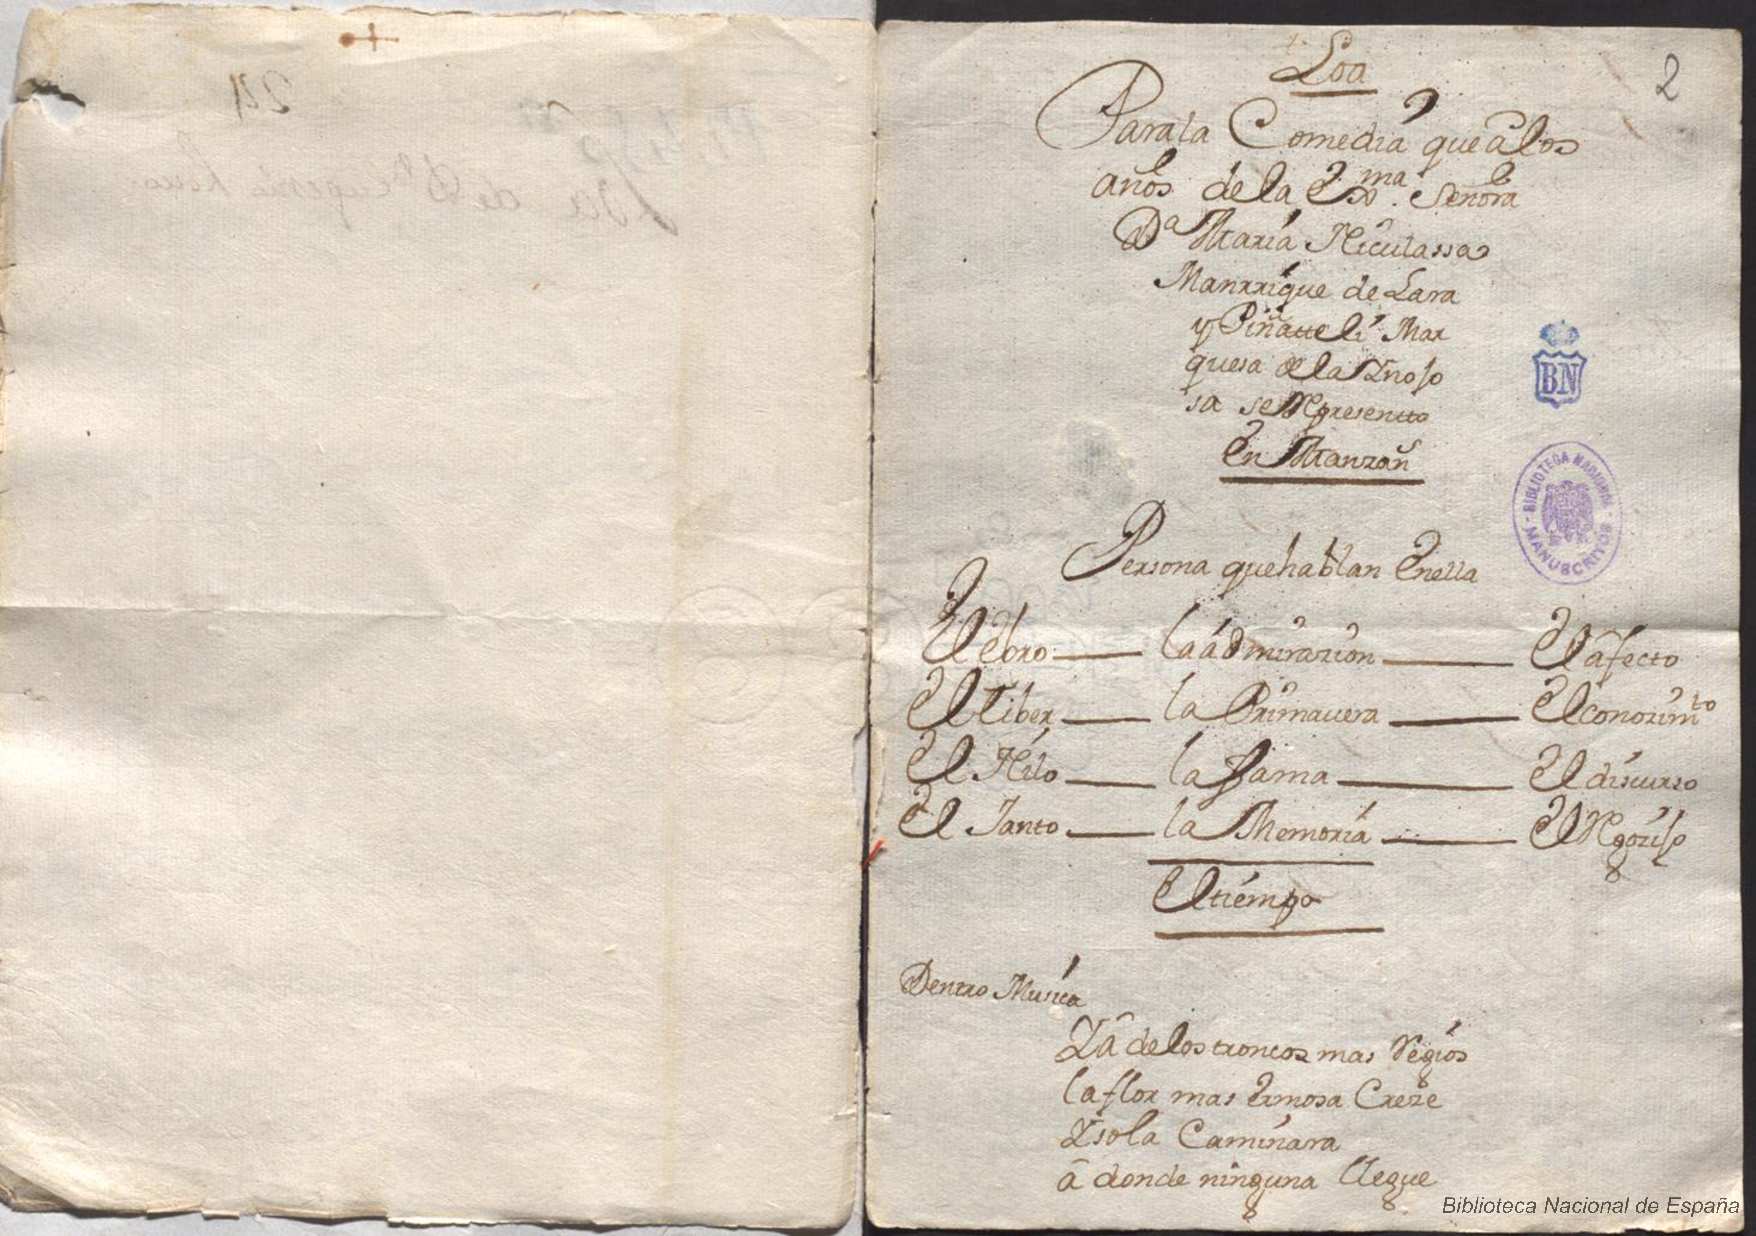 24
Loa
2
Para la Comedia que â los
años de la Exma. Señora
Da Maria Niculassa
Manrrique de Lara
y Piñateli Mar
quesa de la Ynojo
sa se Represento
En Manzan
BN
BIBLIOTECA NACIONAL
MANUSCRITOS
Persona que hablan Enella
El ebro — la admirazion — El afecto
El Tiber — la Primauera — El conozimto
El Nilo — la fama — El discurso
El Janto — la Memoria — El Regozijo
El tiempo
Dentro Musica
Ya de los troncos mas Regios
la flor mas Ermosa Creze
Y sola Caminara
â donde ninguna llegue
Biblioteca Nacional de España